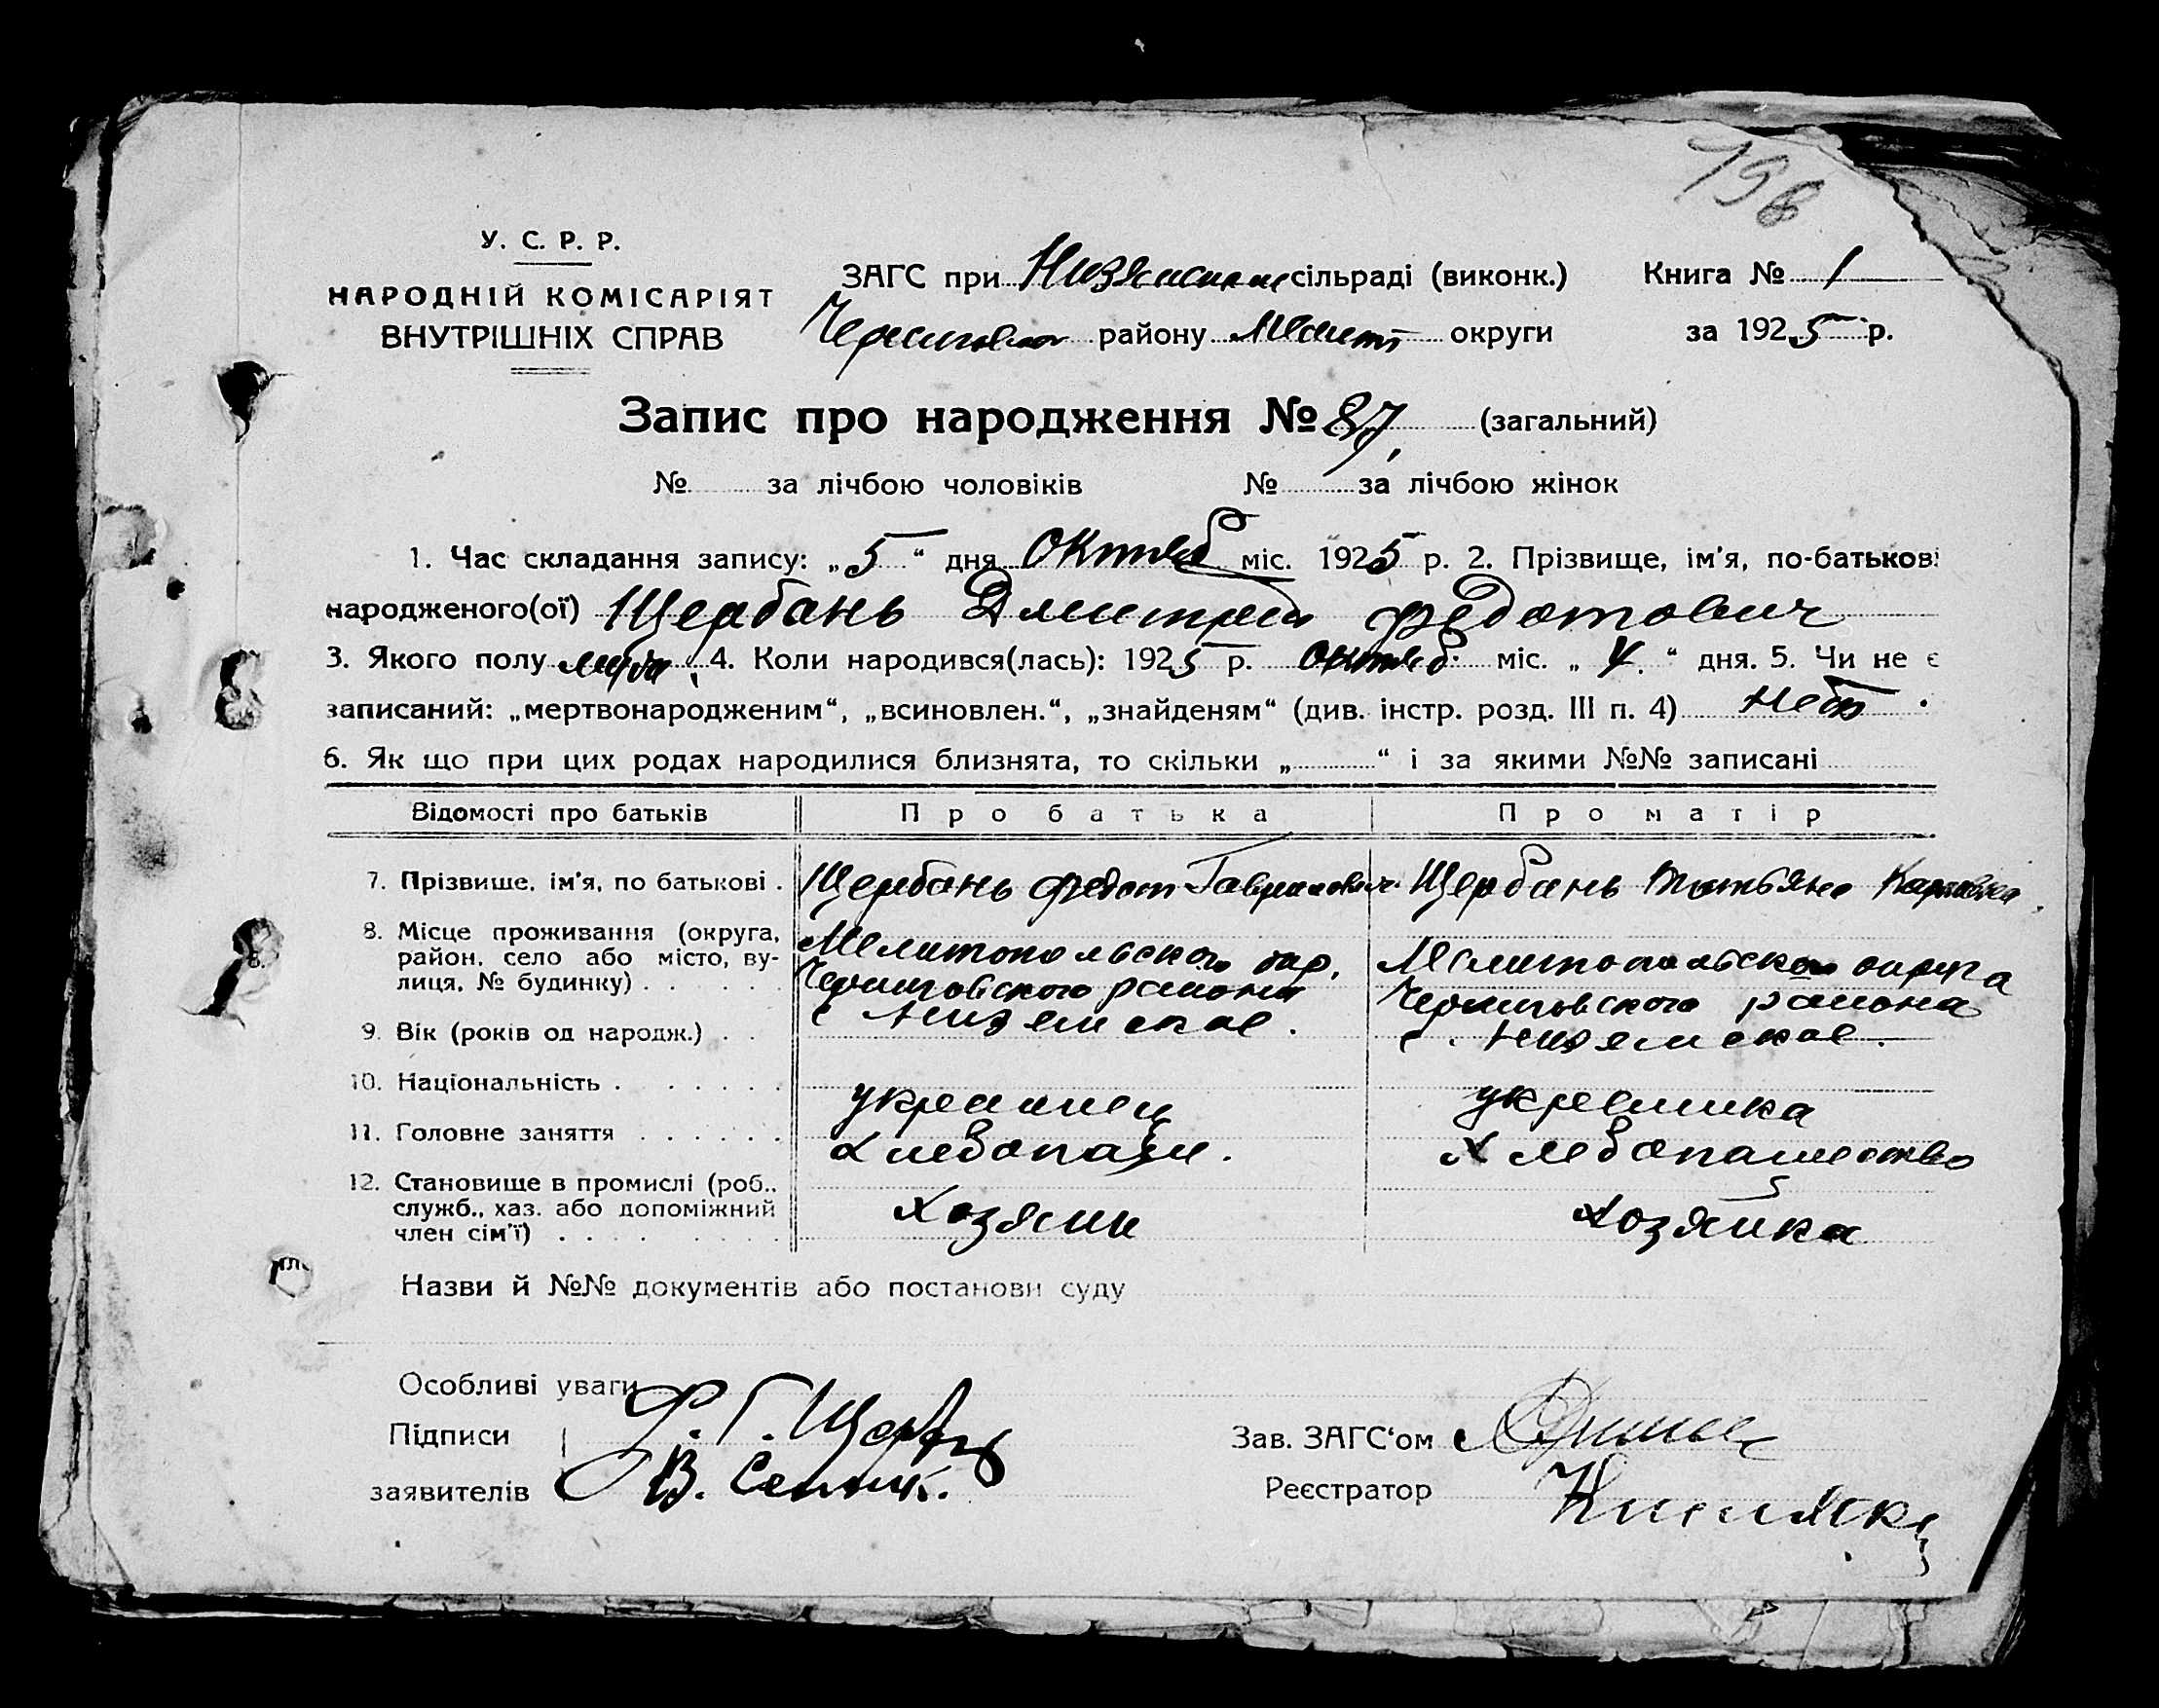 198
У. С. Р. Р.
НАРОДНІЙ КОМІСАРІЯТ
ВНУТРІШНІХ СПРАВ
ЗАГС при сільраді (виконк.) Книга № 1
району Мелит округи за 1925 р.
Запис про народження № 87 (загальний)
№ за лічбою чоловіків № за лічбою жінок
1. Час складання запису: „5“ дня Октяб міс. 1925 р. 2. Прізвище, ім'я, по-батькові
народженого(ої) Щербань Дмитрий Федотович
3. Якого полу 4. Коли народився(лась): 1925 р. Октяб. міс. „4.“ дня. 5. Чи не є
записаний: „мертвонародженим“, „всиновлен.“, „знайденям“ (див. інстр. розд. III п. 4) Нет.
6. Як що при цих родах народилися близнята, то скільки „ “ і за якими №№ записані
Відомості про батьків Про батька Про матір
7. Прізвище, ім'я, по батькові. Щербань Федот Гаврилович. Щербань Татьяна Карповна.
8. Місце проживання (округа, район, село або місто, вулиця, № будинку) Мелитопольского окр. Мелитопольского округа
Черниговского района Черниговского района
9. Вік (років од народж.) с Низянское. с. Низянское.
10. Національність украинец украинка
11. Головне заняття хлебопаш. Хлебопашество
12. Становище в промислі (роб., служб., хаз. або допоміжний член сім'ї) Хозяин Хозяйка
Назви й №№ документів або постанови суду
Особливі уваги
Підписи Ф. Г. Щербань Зав. ЗАГС'ом
заявителів В. Реєстратор